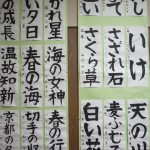 いけ
さざれ石
さくら草
天の川
麦ふ
白い
れ星
い夕日
の成長
海の女神
春の海
温故知新
春の行
切手の
京都の